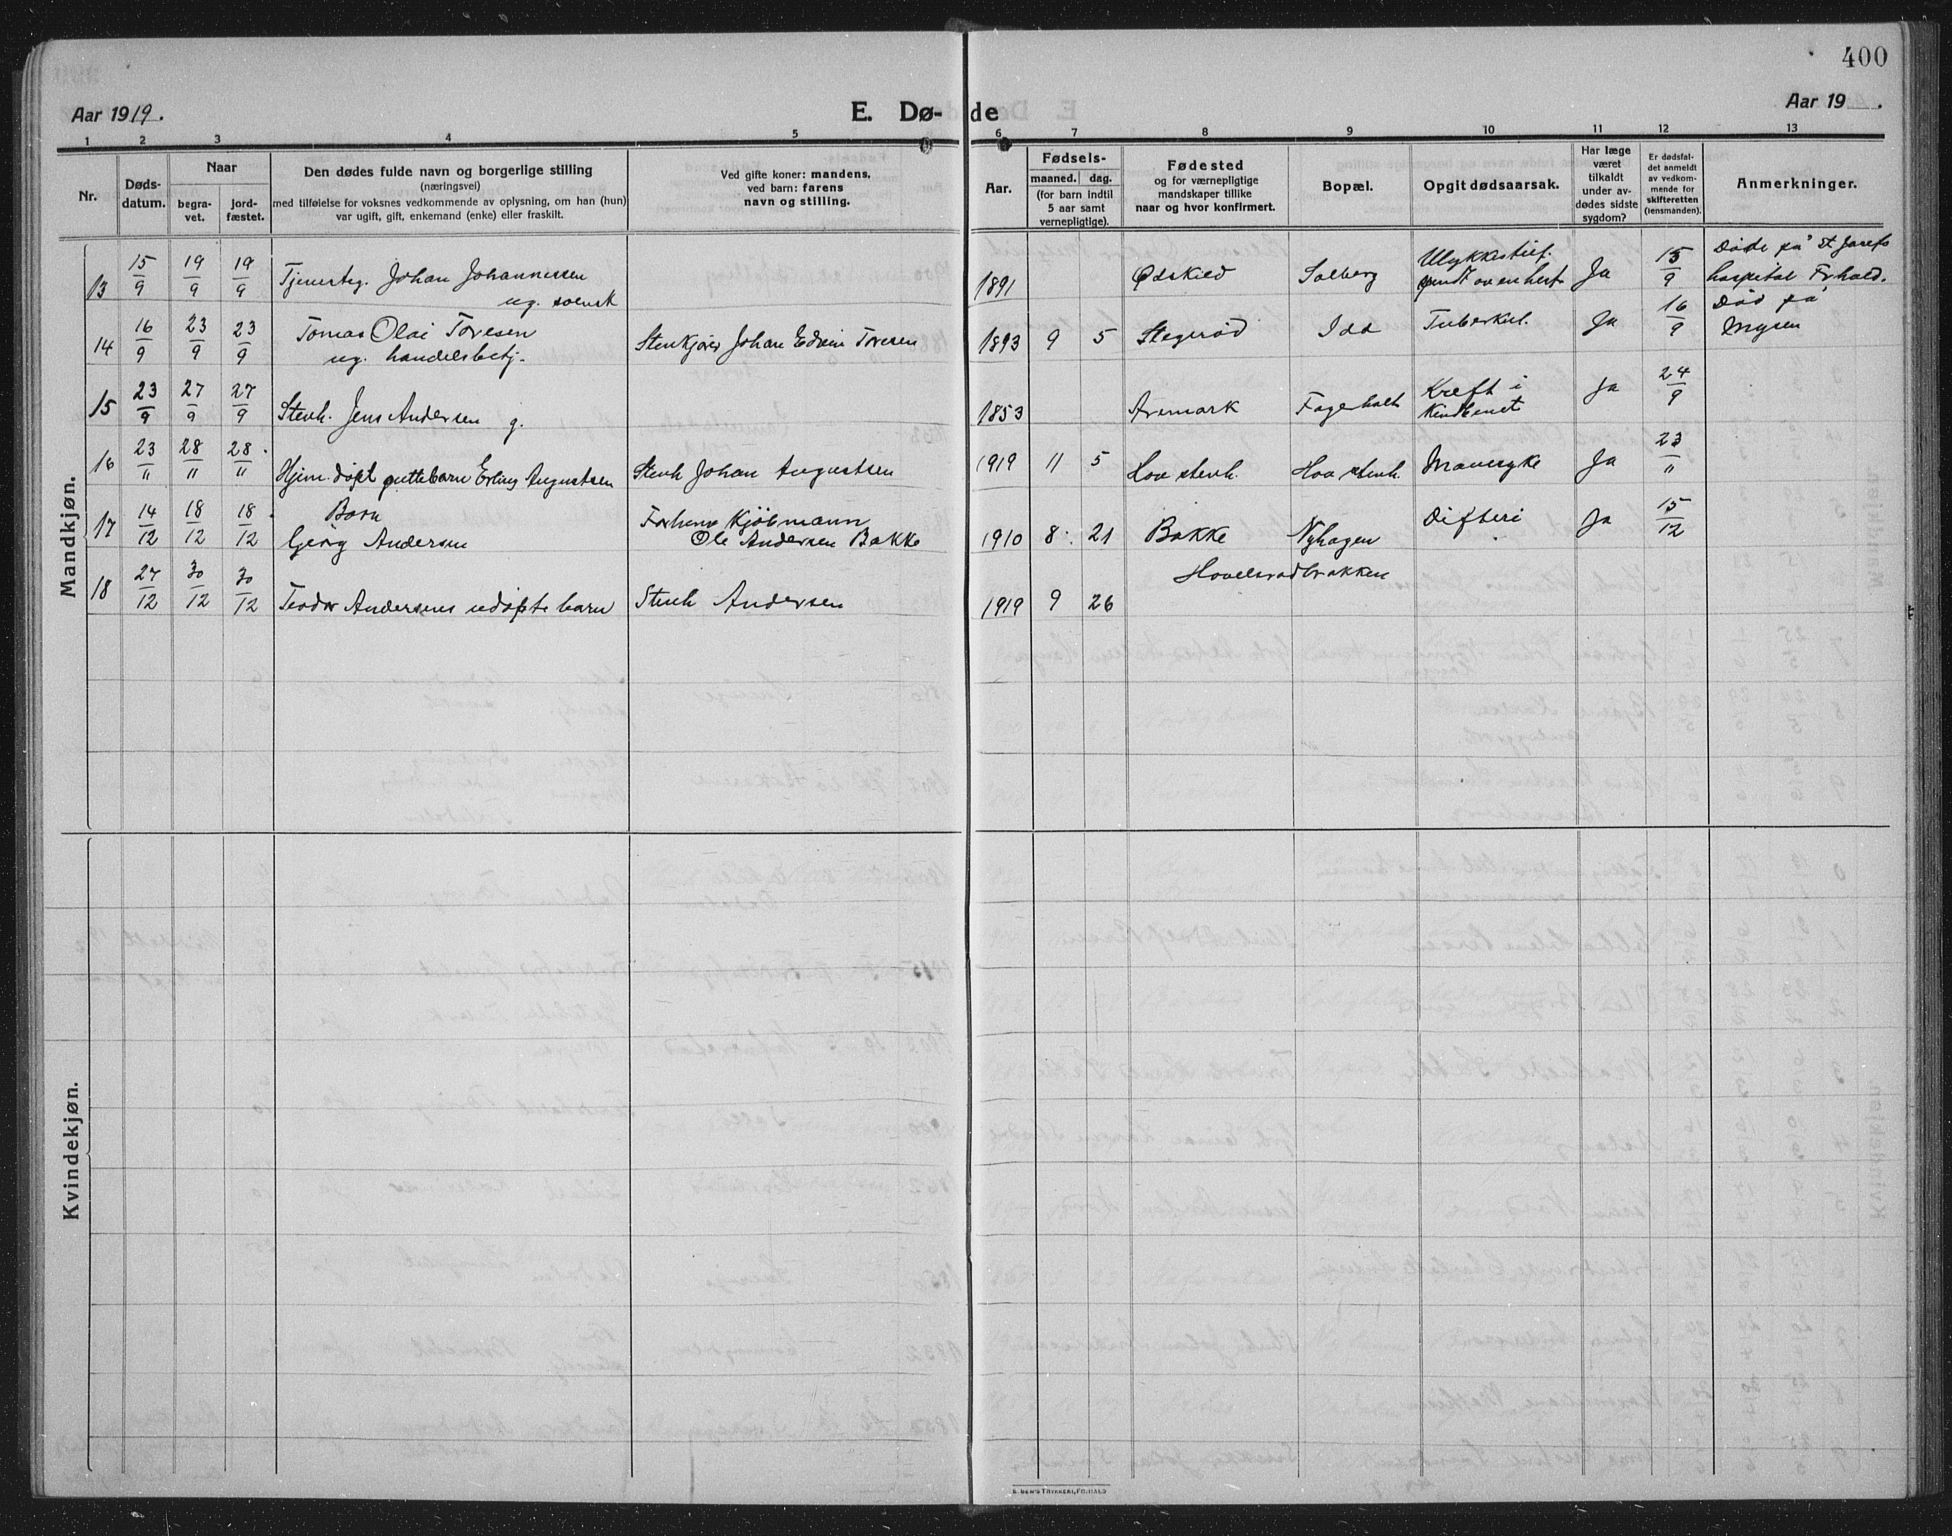 400
Aar 1919. E. Dø- de Aar 19 .
1 2 3 4 5 6 7 8 9 10 11 12 13
Nr.
Døds-
datum.
Naar
begra-
vet.
jord-
fæstet.
Den dødes fulde navn og borgerlige stilling
(næringsvei)
med tilføielse for voksnes vedkommende av oplysning, om han (hun)
var ugift, gift, enkemand (enke) eller fraskilt.
Ved gifte koner: mandens,
ved barn: farens
navn og stilling.
Aar.
Fødsels-
maaned. dag.
(for barn indtil
5 aar samt
vernepligtige).
Fødested
og for værnepligtige
mandskaper tillike
naar og hvor konfirmert.
Bopæl.
Opgit dødsaarsak.
Har læge
været
tilkaldt
under av-
dødes sidste
sygdom?
Er dødsfal-
det anmeldt
av vedkom-
mende for
skifteretten
(lensmanden).
Anmerkninger.
Mandkjøn.
13 15/9 19/9 19/9 Tjenerteg. Johan Johannessen
ug. svensk
1891 Ødskild Solberg Ulykkestilf.
av en hest Ja 15/9 Døde på St Josefs
hospital Frhald.
14 16/9 23/9 23/9 Tomas Olai Toresen
ug. handelsbetj.
Stenkjører Johan Edvin Toresen 1893 9 5 Stegerød Idd Tuberkul. Ja 16/9 Død på
Mysen
15 23/9 27/9 27/9 Stenh. Jens Andersen g.
1853 Aremark Fagerholt Kreft i
Kindbenet Ja 24/9
16 23/11 28/11 28/11 Hjem. døpt guttebarn Erling Augustsen
Stenh Johan Augustsen 1919 11 5 Hov stenh. Hov stenh. Mavesyke Ja 23/11
17 14/12 18/12 18/12 Barn
Georg Andersen
Kjöbmann
Ole Andersen Bakke 1910 8. 21 Bakke Nyhagen Difteri Ja 15/12
18 27/12 30/12 30/12 Teodor Andersens udøpte barn
Stenh Andersen 1919 9 26 Hovelsrødbrakken
Kvindekjøn.
E. SEM'S TRYKKERI, FR.HALD